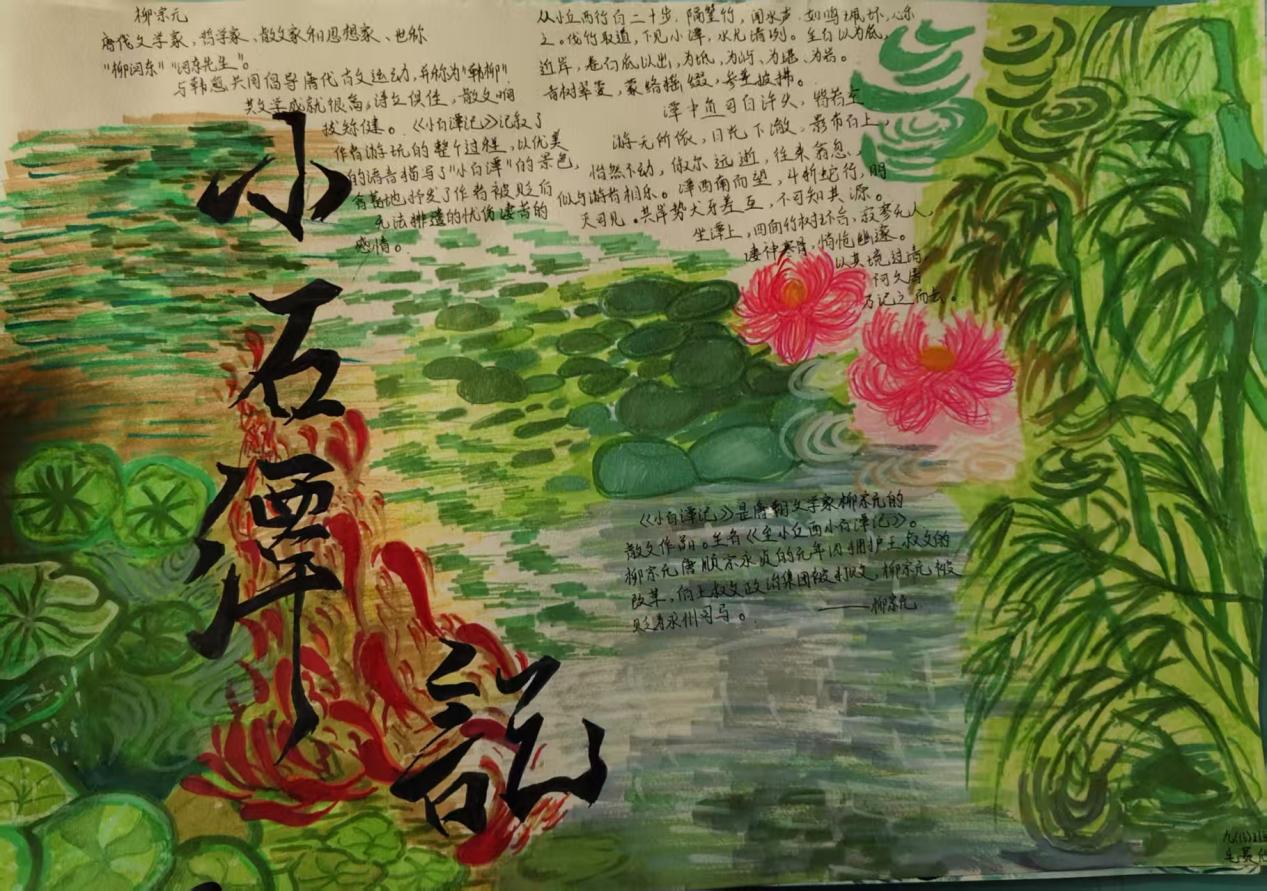 柳宗元
唐代文学家、哲学家、散文家和思想家、世称
"柳河东""河东先生"。
与韩愈共同倡导唐代古文运动,并称为"韩柳"
其文学成就很高,诗文俱佳,散文峭
拔矫健。《小石潭记》记叙了
作者游玩的整个过程,以优美
的语言描写了"小石潭"的景色
含蓄地抒发了作者被贬后
无法排遣的忧伤凄苦的
感情。
从小丘西行百二十步,隔篁竹,闻水声,如鸣珮环,心乐
之。伐竹取道,下见小潭,水尤清冽。全石以为底,
近岸,卷石底以出,为坻,为屿,为嵁,为岩。
青树翠蔓,蒙络摇缀,参差披拂。
潭中鱼可百许头,皆若空
游无所依,日光下澈,影布石上,
怡然不动,俶尔远逝,往来翕忽,
似与游者相乐。潭西南而望,斗折蛇行,明
灭可见。其岸势犬牙差互,不可知其源。
坐潭上,四面竹树环合,寂寥无人,
凄神寒骨,悄怆幽邃。
以其境过清,
不可久居
乃记之而去。
小石潭記
《小石潭记》是唐朝文学家柳宗元的
散文作品。全名《至小丘西小石潭记》。
柳宗元唐顺宗永贞的元年因拥护王叔文的
改革,后王叔文政治集团被打败,柳宗元被
贬为永州司马。
——柳宗元